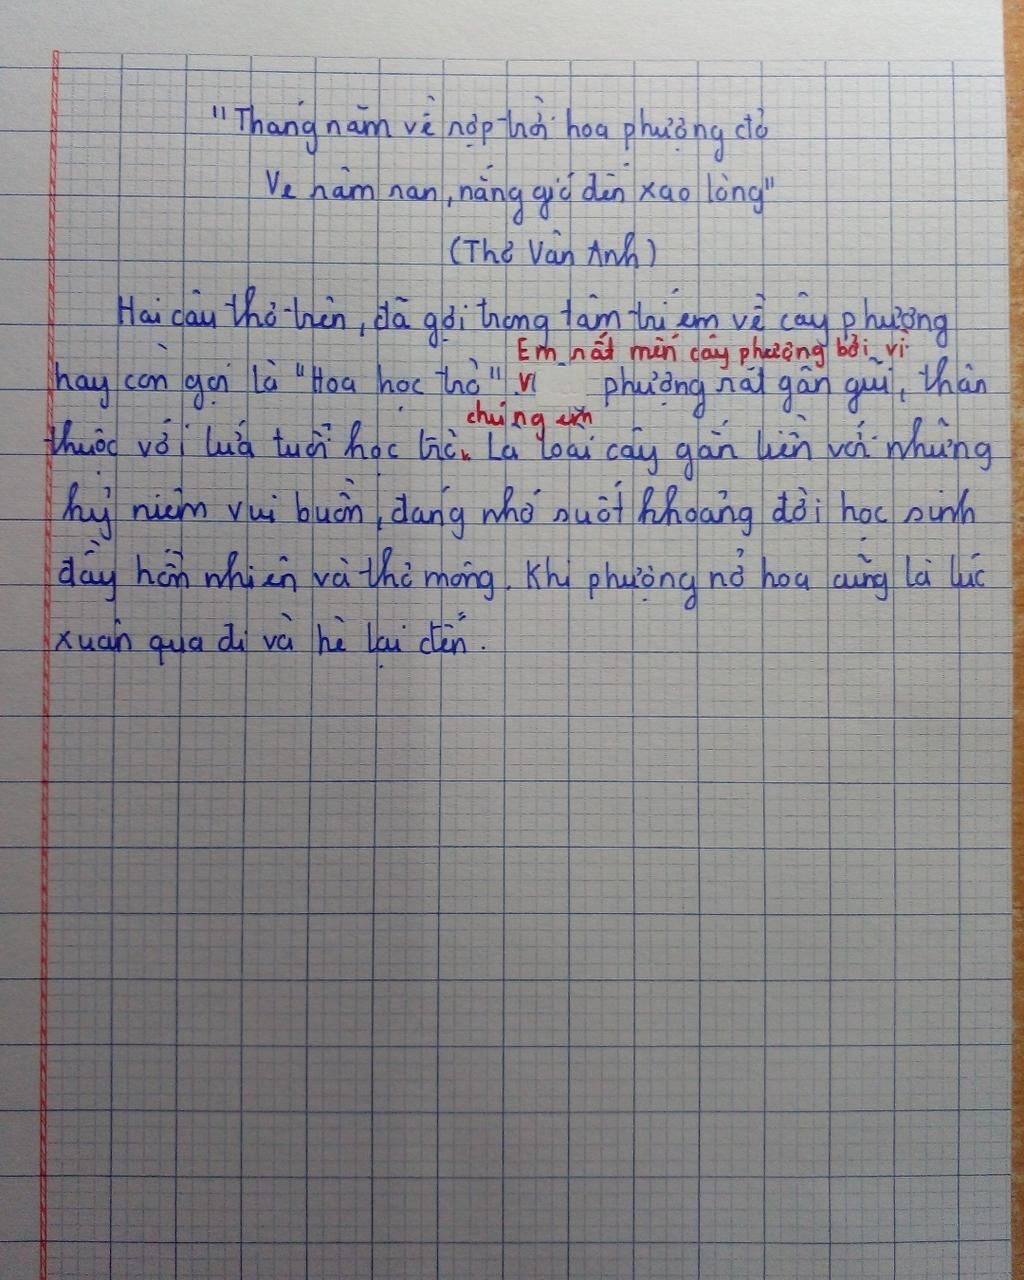 "Tháng năm về rợp trời hoa phượng đỏ
Ve râm ran, nắng gió đến xao lòng"
(Thơ Vân Anh)
Hai câu thơ trên, đã gợi trong tâm trí em về cây phượng
Em rất mến cây phượng bởi vì
hay còn gọi là "Hoa học trò" V phượng rất gần gũi, thân
chúng em
thuộc với lứa tuổi học trò. Là loài cây gắn liền với những
kỷ niệm vui buồn, đáng nhớ suốt khoảng đời học sinh
đầy hồn nhiên và thơ mộng. Khi phượng nở hoa cũng là lúc
xuân qua đi và hè lại đến.